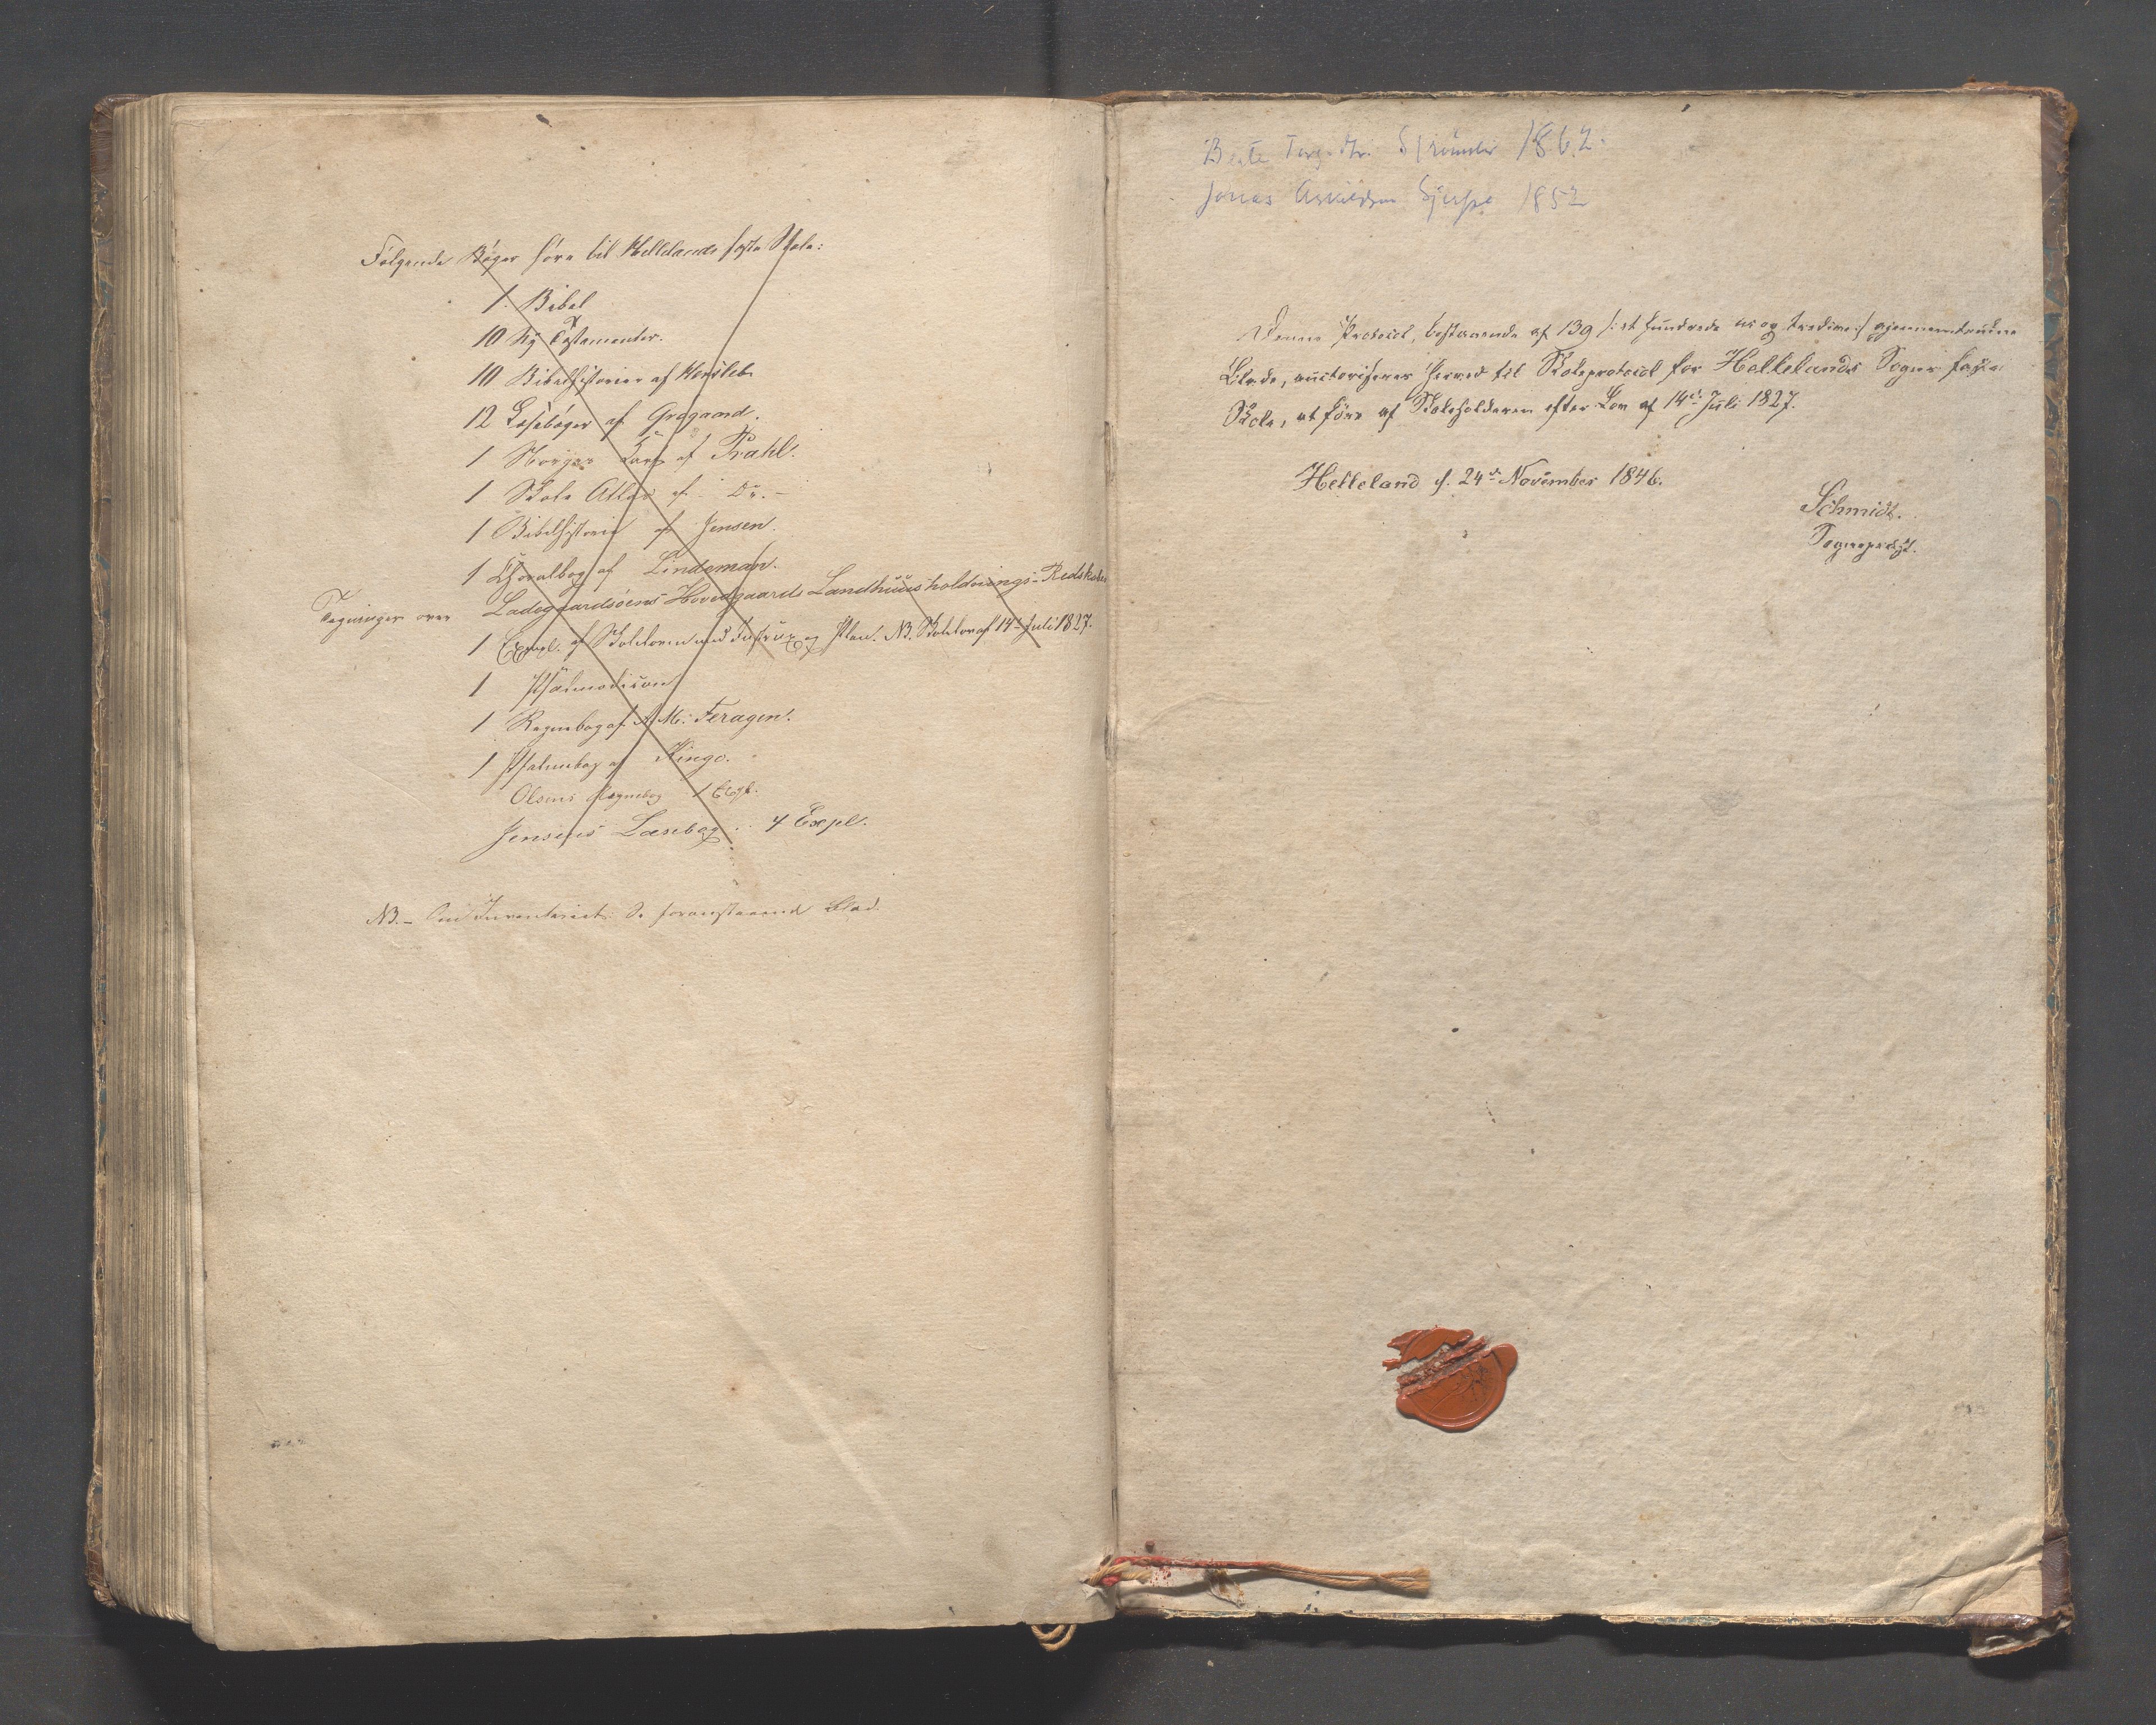 Følgende Bøger høre til Hellelands faste Skole:
1. Bibel
10 Ny Testamenter.
10 Bibelhistorier af Hersleb
12 Læsebøger af Grøgaard.
1 Norges Kart af Prahl.
1 Skole Atlas af Do. -
1 Bibelhistorie af Jensen.
1 Choralbog af Lindeman.
Tegninger over Ladegaardsöens Hovedgaards Landhuusholdnings-Redskaber
1 Exempl. af Skoleloven med Instrux og Plan. NB. Skolelov af 14de Juli 1827.
1 Psalmodicon
1 Regnebog af A. M. Feragen.
1 Psalmebog af Kingo.
Olsens Regnebog 1 Expl.
Jensens Læsebog. 4 Expl.
NB. - Om Inventariet: Se foranstaaende Blad.
Berte Torg.dtr. 1862.
Jonas Askildsen 1852
Denne Protocol, bestaaende af 139 /: et hundrede ni og tredive :/ gjennemtrukne
Blade, auctoriseres herved til Skoleprotocol for Hellelands Sogns faste
Skole, at føre af Skoleholderen efter Lov af 14de Juli 1827.
Helleland d. 24de November 1846.
Schmidt.
Sognepræst.